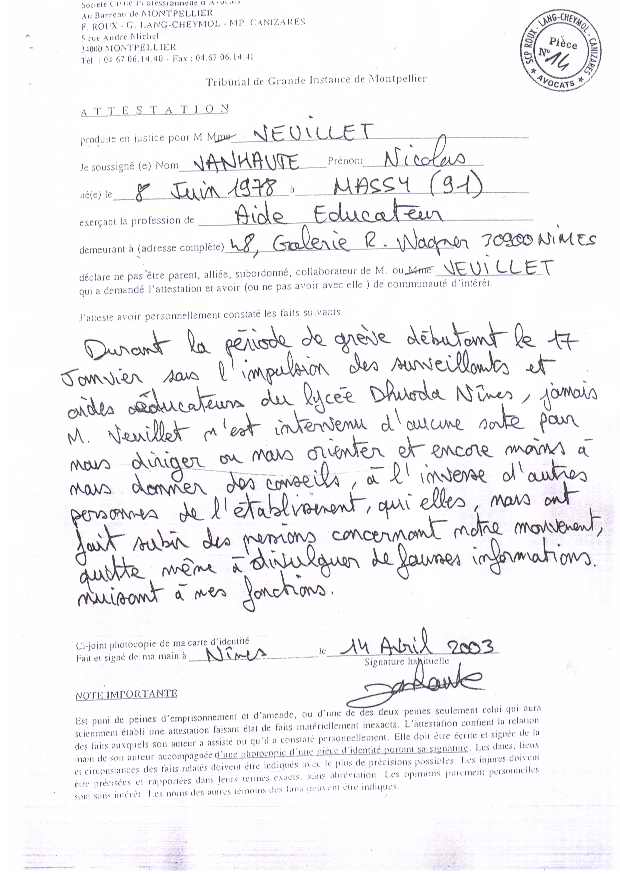 Société Civile Professionnelle d'Avocats
Au Barreau de MONTPELLIER
F. ROUX - G. LANG-CHEYMOL - MP. CANIZARES
5 rue André Michel
34000 MONTPELLIER
Tél : 04.67.06.14.40 - Fax : 04.67.06.14.41
SCP ROUX - LANG-CHEYMOL - CANIZARES
Pièce
N° 14
* AVOCATS *
Tribunal de Grande Instance de Montpellier
ATTESTATION
produite en justice pour M Mme NEUILLET
Je soussigné (e) Nom VANHAUTE Prénom Nicolas
né(e) le 8 Juin 1978. MASSY (91)
exerçant la profession de Aide Educateur
demeurant à (adresse complète) 48, Galerie R. Wagner 30900 NIMES
déclare ne pas être parent, alliée, subordonné, collaborateur de M. ou Mme NEUILLET
qui a demandé l'attestation et avoir (ou ne pas avoir avec elle ) de communauté d'intérêt
J'atteste avoir personnellement constaté les faits suivants
Durant la période de grève débutant le 17
Janvier sous l'impulsion des surveillants et
aides éducateurs du lycée Dhuoda Nîmes, jamais
M. Neuillet n'est intervenu d'aucune sorte pour
nous diriger ou nous orienter et encore moins à
nous donner des conseils, à l'inverse d'autres
personnes de l'établissement, qui elles, nous ont
fait subir des pressions concernant notre mouvement,
quitte même à divulguer de fausses informations.
nuisant à nos fonctions.
Ci-joint photocopie de ma carte d'identité
Fait et signé de ma main à Nîmes le 14 Avril 2003
Signature habituelle
NOTE IMPORTANTE
Est puni de peines d'emprisonnement et d'amende, ou d'une de des deux peines seulement celui qui aura
sciemment établi une attestation faisant état de faits matériellement inexacts. L'attestation contient la relation
des faits auxquels son auteur a assisté ou qu'il a constaté personnellement. Elle doit être écrite et signée de la
main de son auteur accompagnée d'une photocopie d'une pièce d'identité portant sa signature. Les dates, lieux
et circonstances des faits relatés doivent être indiqués avec le plus de précisions possibles. Les injures doivent
être précisées et rapportées dans leurs termes exacts, sans abréviation. Les opinions purement personnelles
sont sans intérêt. Les noms des autres témoins des faits peuvent être indiqués.